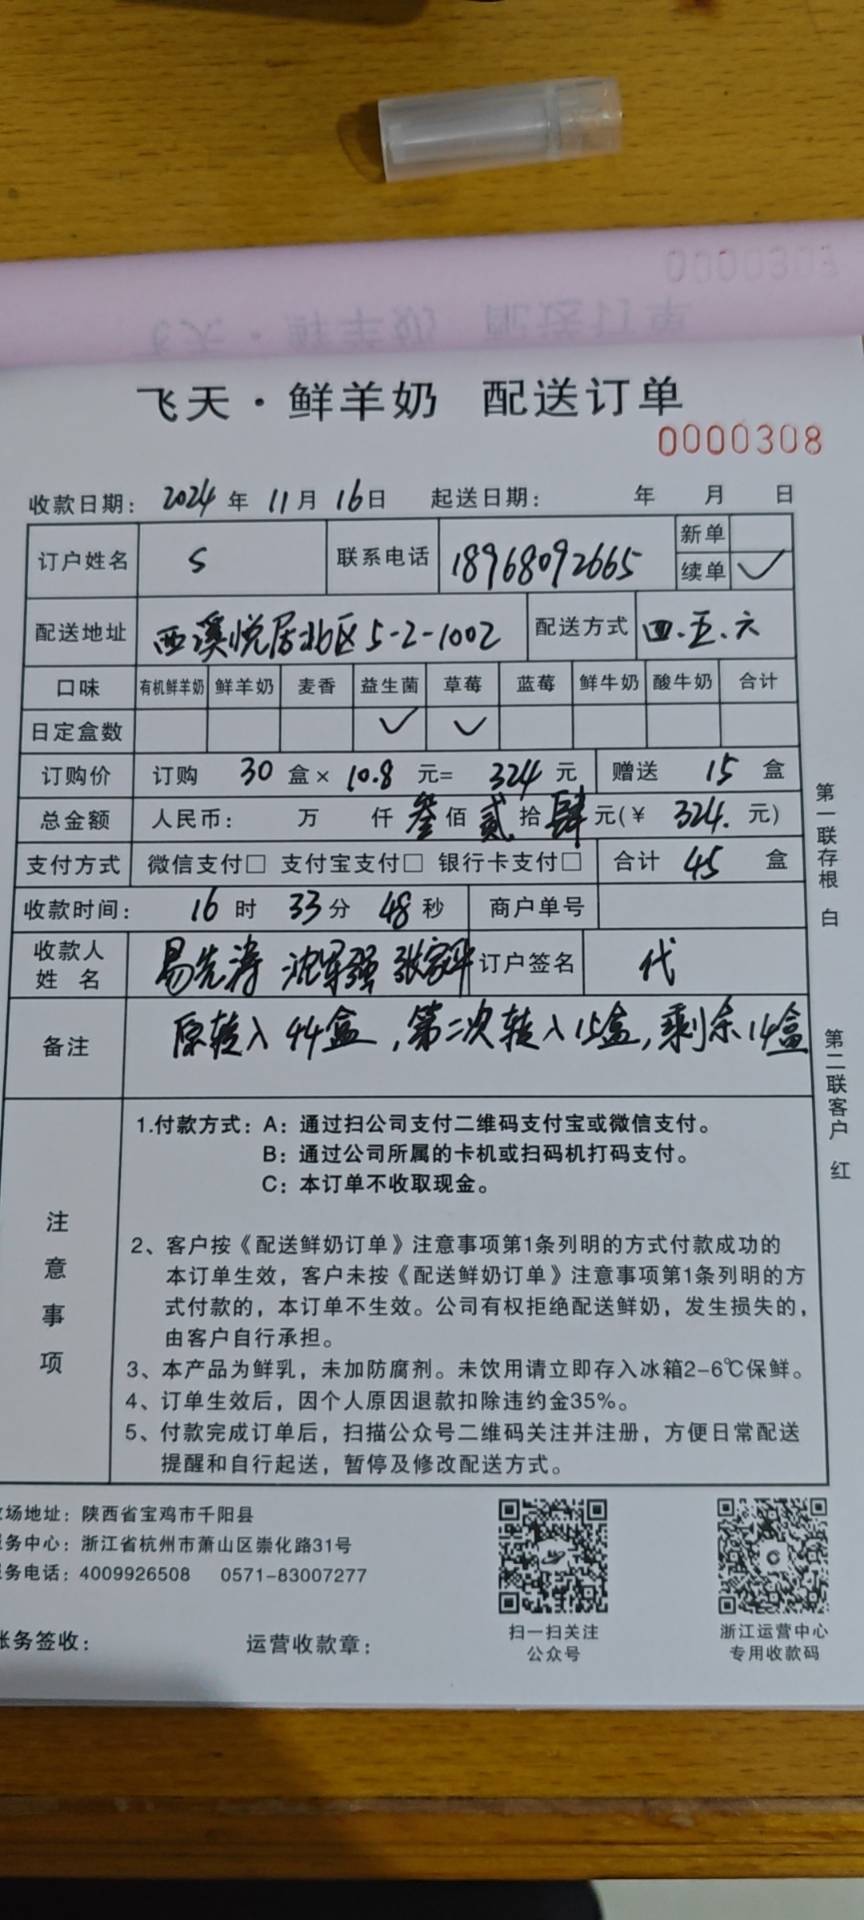 0000303
飞天·鲜羊奶 配送订单
飞天·鲜羊奶 配送订单
0000308
收款日期： 2024 年 11 月 16 日 起送日期： 年 月 日
订户姓名 S 联系电话 18968092665 新单
续单 ✓
配送地址 西溪悦居北区5-2-1002 配送方式 四.五.六
口味 有机鲜羊奶 鲜羊奶 麦香 益生菌 草莓 蓝莓 鲜牛奶 酸牛奶 合计
日定盒数 ✓ ✓
订购价 订购 30 盒× 10.8 元= 324 元 赠送 15 盒
总金额 人民币： 万 仟 叁 佰 贰 拾 肆 元(¥ 324. 元)
支付方式 微信支付□ 支付宝支付□ 银行卡支付□ 合计 45 盒
收款时间： 16 时 33 分 48 秒 商户单号
收款人
姓 名 易先涛 沈军强 张家平 订户签名 代
备注 原转入44盒，第二次转入15盒，剩余14盒
注意事项
1.付款方式：A：通过扫公司支付二维码支付宝或微信支付。
B：通过公司所属的卡机或扫码机打码支付。
C：本订单不收取现金。
2、客户按《配送鲜奶订单》注意事项第1条列明的方式付款成功的
本订单生效，客户未按《配送鲜奶订单》注意事项第1条列明的方
式付款的，本订单不生效。公司有权拒绝配送鲜奶，发生损失的，
由客户自行承担。
3、本产品为鲜乳，未加防腐剂。未饮用请立即存入冰箱2-6℃保鲜。
4、订单生效后，因个人原因退款扣除违约金35%。
5、付款完成订单后，扫描公众号二维码关注并注册，方便日常配送
提醒和自行起送，暂停及修改配送方式。
第一联存根 白
第二联客户 红
场地址：陕西省宝鸡市千阳县
务中心：浙江省杭州市萧山区崇化路31号
务电话：4009926508 0571-83007277
扫一扫关注
公众号
浙江运营中心
专用收款码
账务签收： 运营收款章：